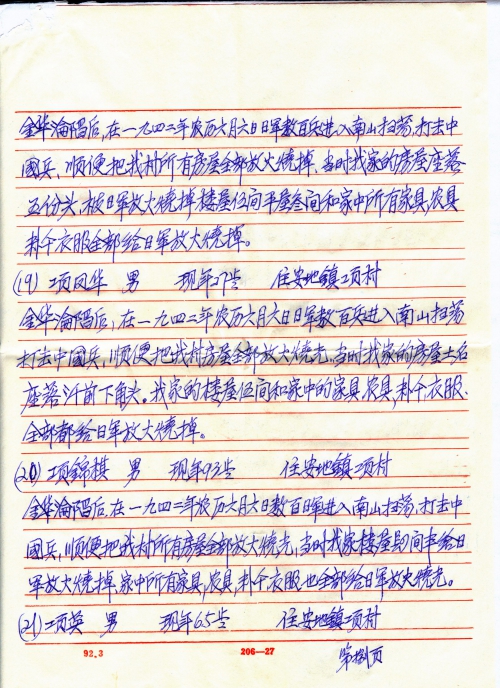 金华沦陷后,在一九四二年农历六月六日日军数百兵进入南山扫荡,打击中
國兵,顺便把我村所有房屋全部放火烧掉,当时我家的房屋座落
五份头,被日军放火烧掉楼屋伍间平屋叁间和家中所有家具,农具
料千衣服全部给日军放火烧掉。
(19)项凤华 男 现年27岁 住安地镇项村
金华沦陷后,在一九四二年农历六月六日日军数百兵进入南山扫荡
打击中國兵,顺便把我村房屋全部放火烧光,当时我家的房屋土名
座落 前下角头。我家的楼屋伍间和家中的家具,农具,料千,衣服、
全部都给日军放火烧掉。
(20)项锦棋 男 现年93岁 住安地镇项村
金华沦陷后,在一九四二年农历六月六日数百日军进入南山扫荡,打击中
國兵,顺便把我村所有房屋全部放火烧光,当时我家楼屋 间半给日
军放火烧掉,家中所有家具,农具,料千衣服也全部给日军放火烧光。
(21)项英 男 现年65岁 住安地镇项村
92.3 206—27
第捌页